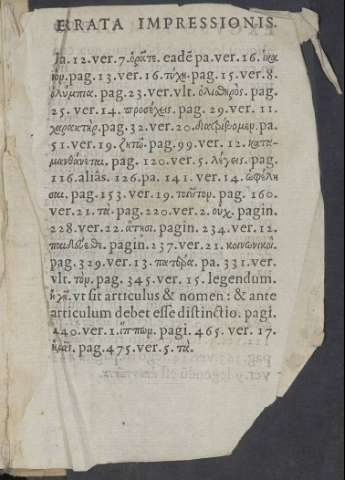 ERRATA IMPRESSIONIS.
12. ver. 7. ὁρᾶτε. eadē pa. ver. 16.
pag. 13. ver. 16. τύχη. pag. 15. ver. 8.
ὀλύμπια. pag. 23. ver. vlt. ὀλισθηρός. pag.
25. ver. 14. προσέχεις. pag. 29. ver. 11.
χαρακτὴρ. pag. 32. ver. 20. διατρίβομεν. pa.
51. ver. 19. ζητῶ. pag. 99. ver. 12. κατα-
μανθάνεται. pag. 120. ver. 5. λύγεις. pag.
116. aliâs. 126. pa. 141. ver. 14. ὠφελη
σαι. pag. 153. ver. 19. τοιοῦτον. pag. 160.
ver. 21. τὰ. pag. 220. ver. 2. οὐχ. pagin.
228. ver. 22. pagin. 234. ver. 12.
pagin. 237. ver. 21. κοινωνικοί.
pag. 329. ver. 13. πατέρα. pa. 331. ver.
vlt. τὸν. pag. 345. ver. 15. legendum.
vt sit articulus & nomen: & ante
articulum debet esse distinctio. pagi.
440. ver. 1. ἵππων. pagi. 465. ver. 17.
pag. 475. ver. 5. τὰ.